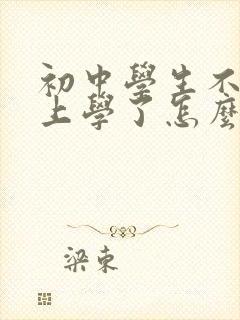 初中學生不
上學了怎麼
梁東